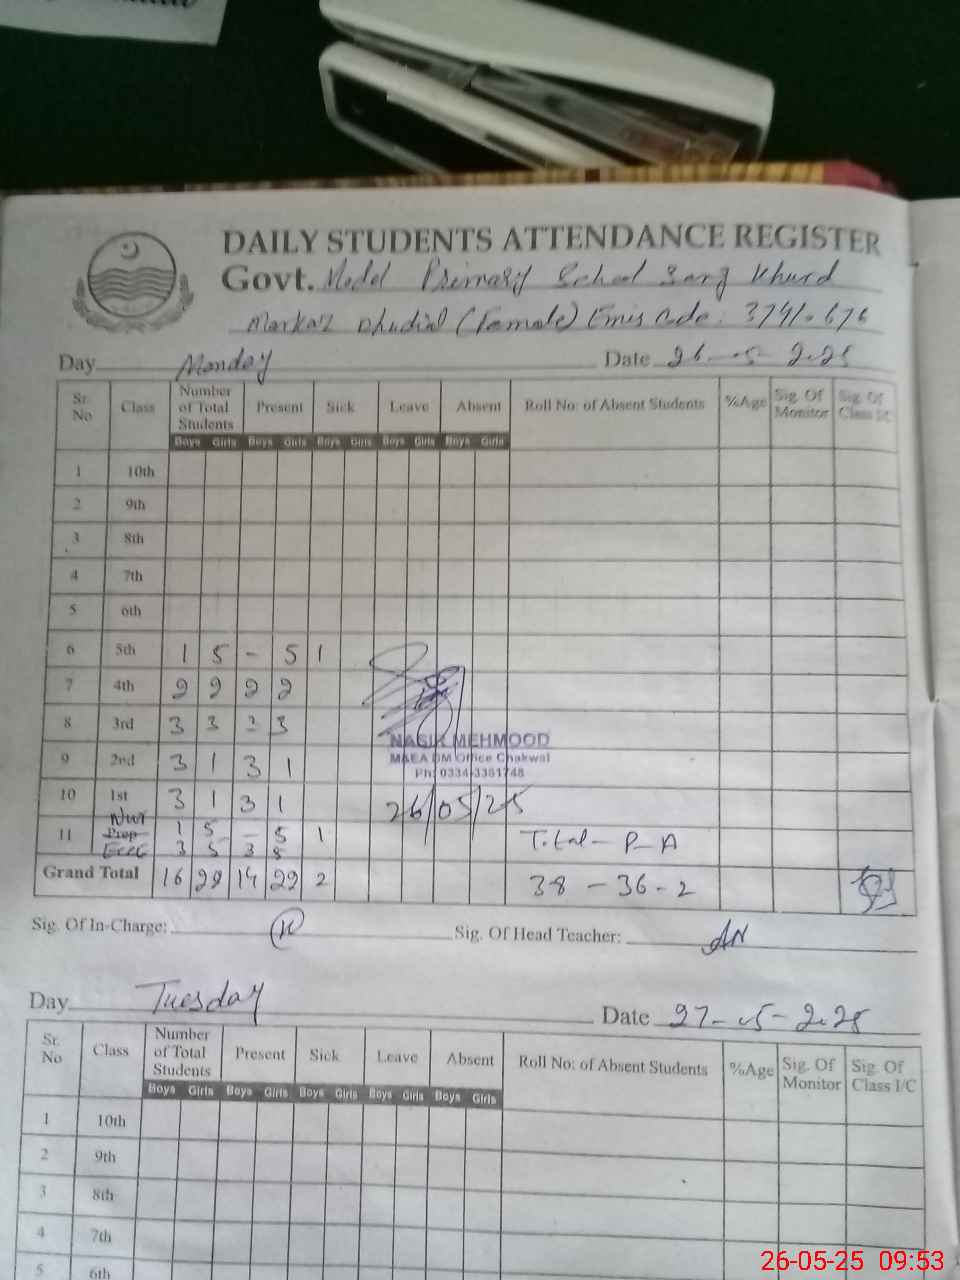 DAILY STUDENTS ATTENDANCE REGISTER
Govt. Model Primary School Sang Khurd
Markaz Dhudial (Female) Emis Code: 37410676
Day Monday Date 26-05-2025
Sr. No Class Number of Total Students Present Sick Leave Absent Roll No: of Absent Students %Age Sig. Of Monitor Sig. Of Class I/C
Boys Girls Boys Girls Boys Girls Boys Girls Boys Girls
1 10th
2 9th
3 8th
4 7th
5 6th
6 5th 1 5 - 5 1
7 4th 2 9 2 9
8 3rd 3 3 3 3
NASIR MEHMOOD
9 2nd 3 1 3 1
MAEA DM Office Chakwal
Ph: 0334-3381748
10 1st 3 1 3 1
26/05/25
Nur 1 5 - 5 1
11 Prep
ECCE 3 5 3 5
Total - P - A
Grand Total 16 22 14 22 2
38 - 36 - 2
Sig. Of In-Charge: Sig. Of Head Teacher: AN
Day Tuesday Date 27-05-2025
Sr. No Class Number of Total Students Present Sick Leave Absent Roll No: of Absent Students %Age Sig. Of Monitor Sig. Of Class I/C
Boys Girls Boys Girls Boys Girls Boys Girls Boys Girls
1 10th
2 9th
3 8th
4 7th
5 6th
26-05-25 09:53